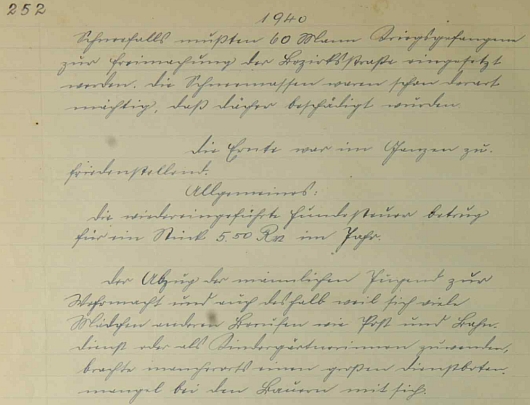 252
1940
Schneefalls mußten 60 Mann Kriegsgefangene
zur Freimachung der Bezirksstraße eingesetzt
werden. Die Schneemassen waren schon derart
mächtig, daß Dächer beschädigt wurden.
Die Ernte war im Ganzen zu-
friedenstellend.
Allgemeines:
Die wiedereingeführte Hundesteuer betrug
für ein Stück 5,50 RM im Jahr.
Der Abzug der männlichen Jugend zur
Wehrmacht und auch deshalb weil sich viele
Mädchen anderen Berufen wie Post und Bahn-
dienst oder als Kindergärtnerinnen zuwenden,
brachte mancherorts einen großen Dienstboten-
mangel bei den Bauern mit sich.